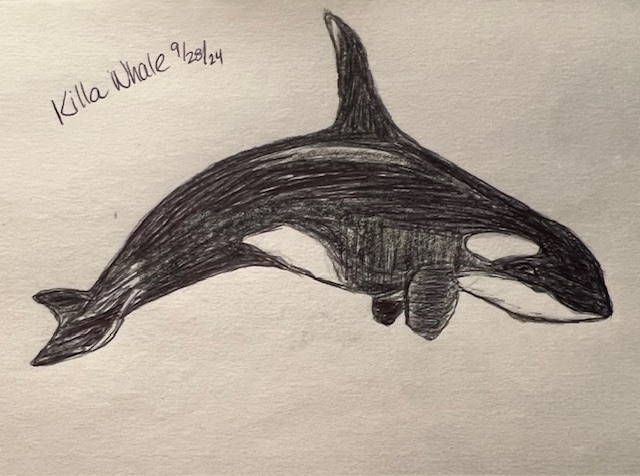 Killa Whale 9/28/24